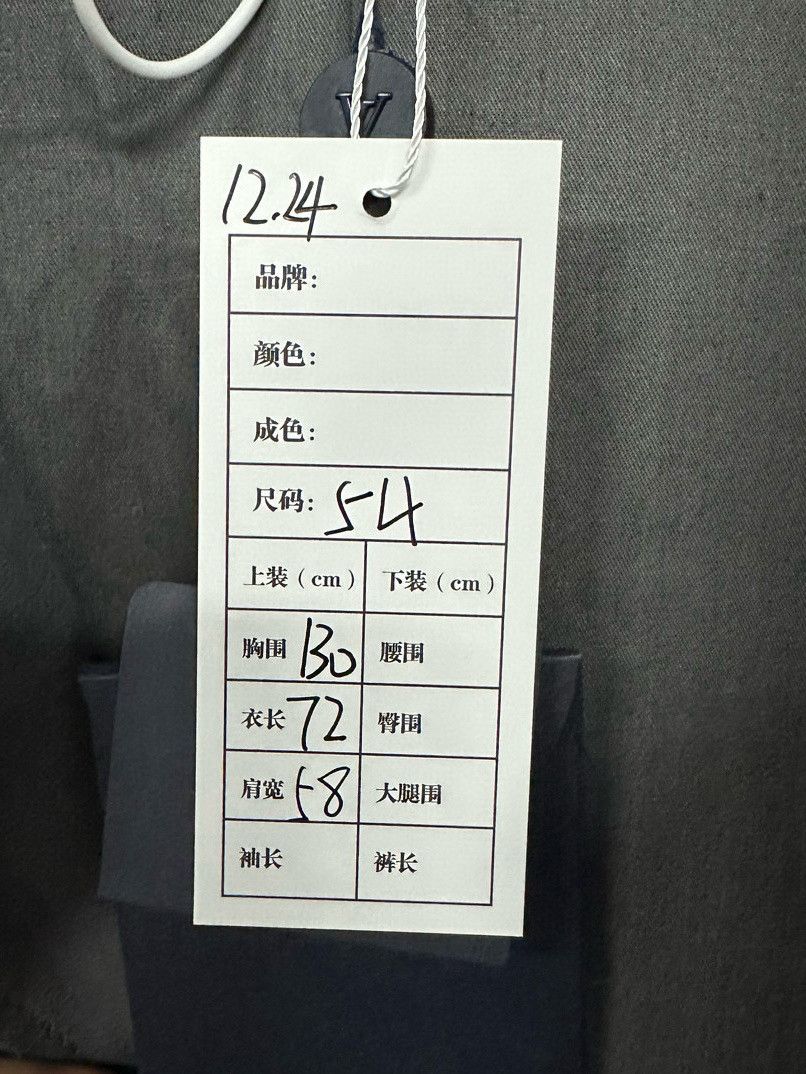 LV
12.24
品牌:
颜色:
成色:
尺码: 54
上装（cm） 下装（cm）
胸围 130 腰围
衣长 72 臀围
肩宽 58 大腿围
袖长 裤长